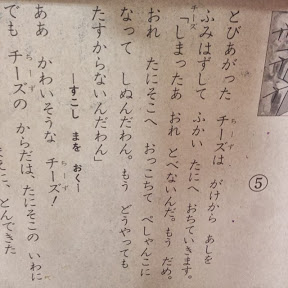 ⑤
とびあがった チーズは がけから あしを
ふみはずして ふかい たにへ おちていきます。
「しまったあ おれ とべないんだ。もう だめ。
おれ たにそこへ おっこちて ぺしゃんこに
なって しぬんだわん。もう どうやっても
たすからないんだわん」
―すこし まを おく―
ああ かわいそうな チーズ!
でも チーズの からだは、たにそこの いわに
とんできた